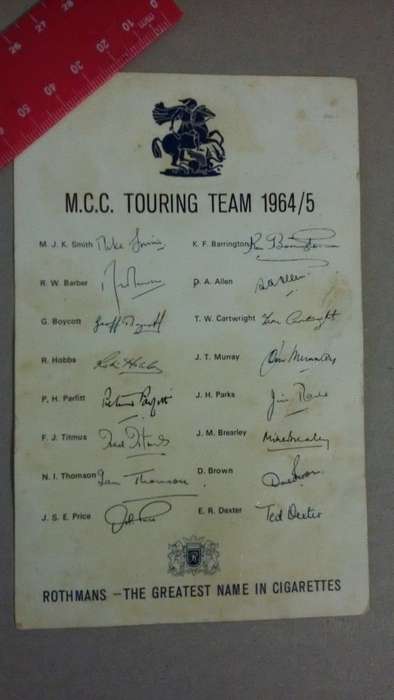 M.C.C. TOURING TEAM 1964/5
M. J. K. Smith Mike Smith K. F. Barrington Ken Barrington
R. W. Barber D. A. Allen D A Allen
G. Boycott Geoff Boycott T. W. Cartwright Tom Cartwright
R. Hobbs Robin Hobbs J. T. Murray John Murray
P. H. Parfitt Peter Parfitt J. H. Parks Jim Parks
F. J. Titmus Fred Titmus J. M. Brearley Mike Brearley
N. I. Thomson Ian Thomson D. Brown
J. S. E. Price John Price E. R. Dexter Ted Dexter
ROTHMANS – THE GREATEST NAME IN CIGARETTES
26 27 28
mm 0 10 20 30 40 50 60